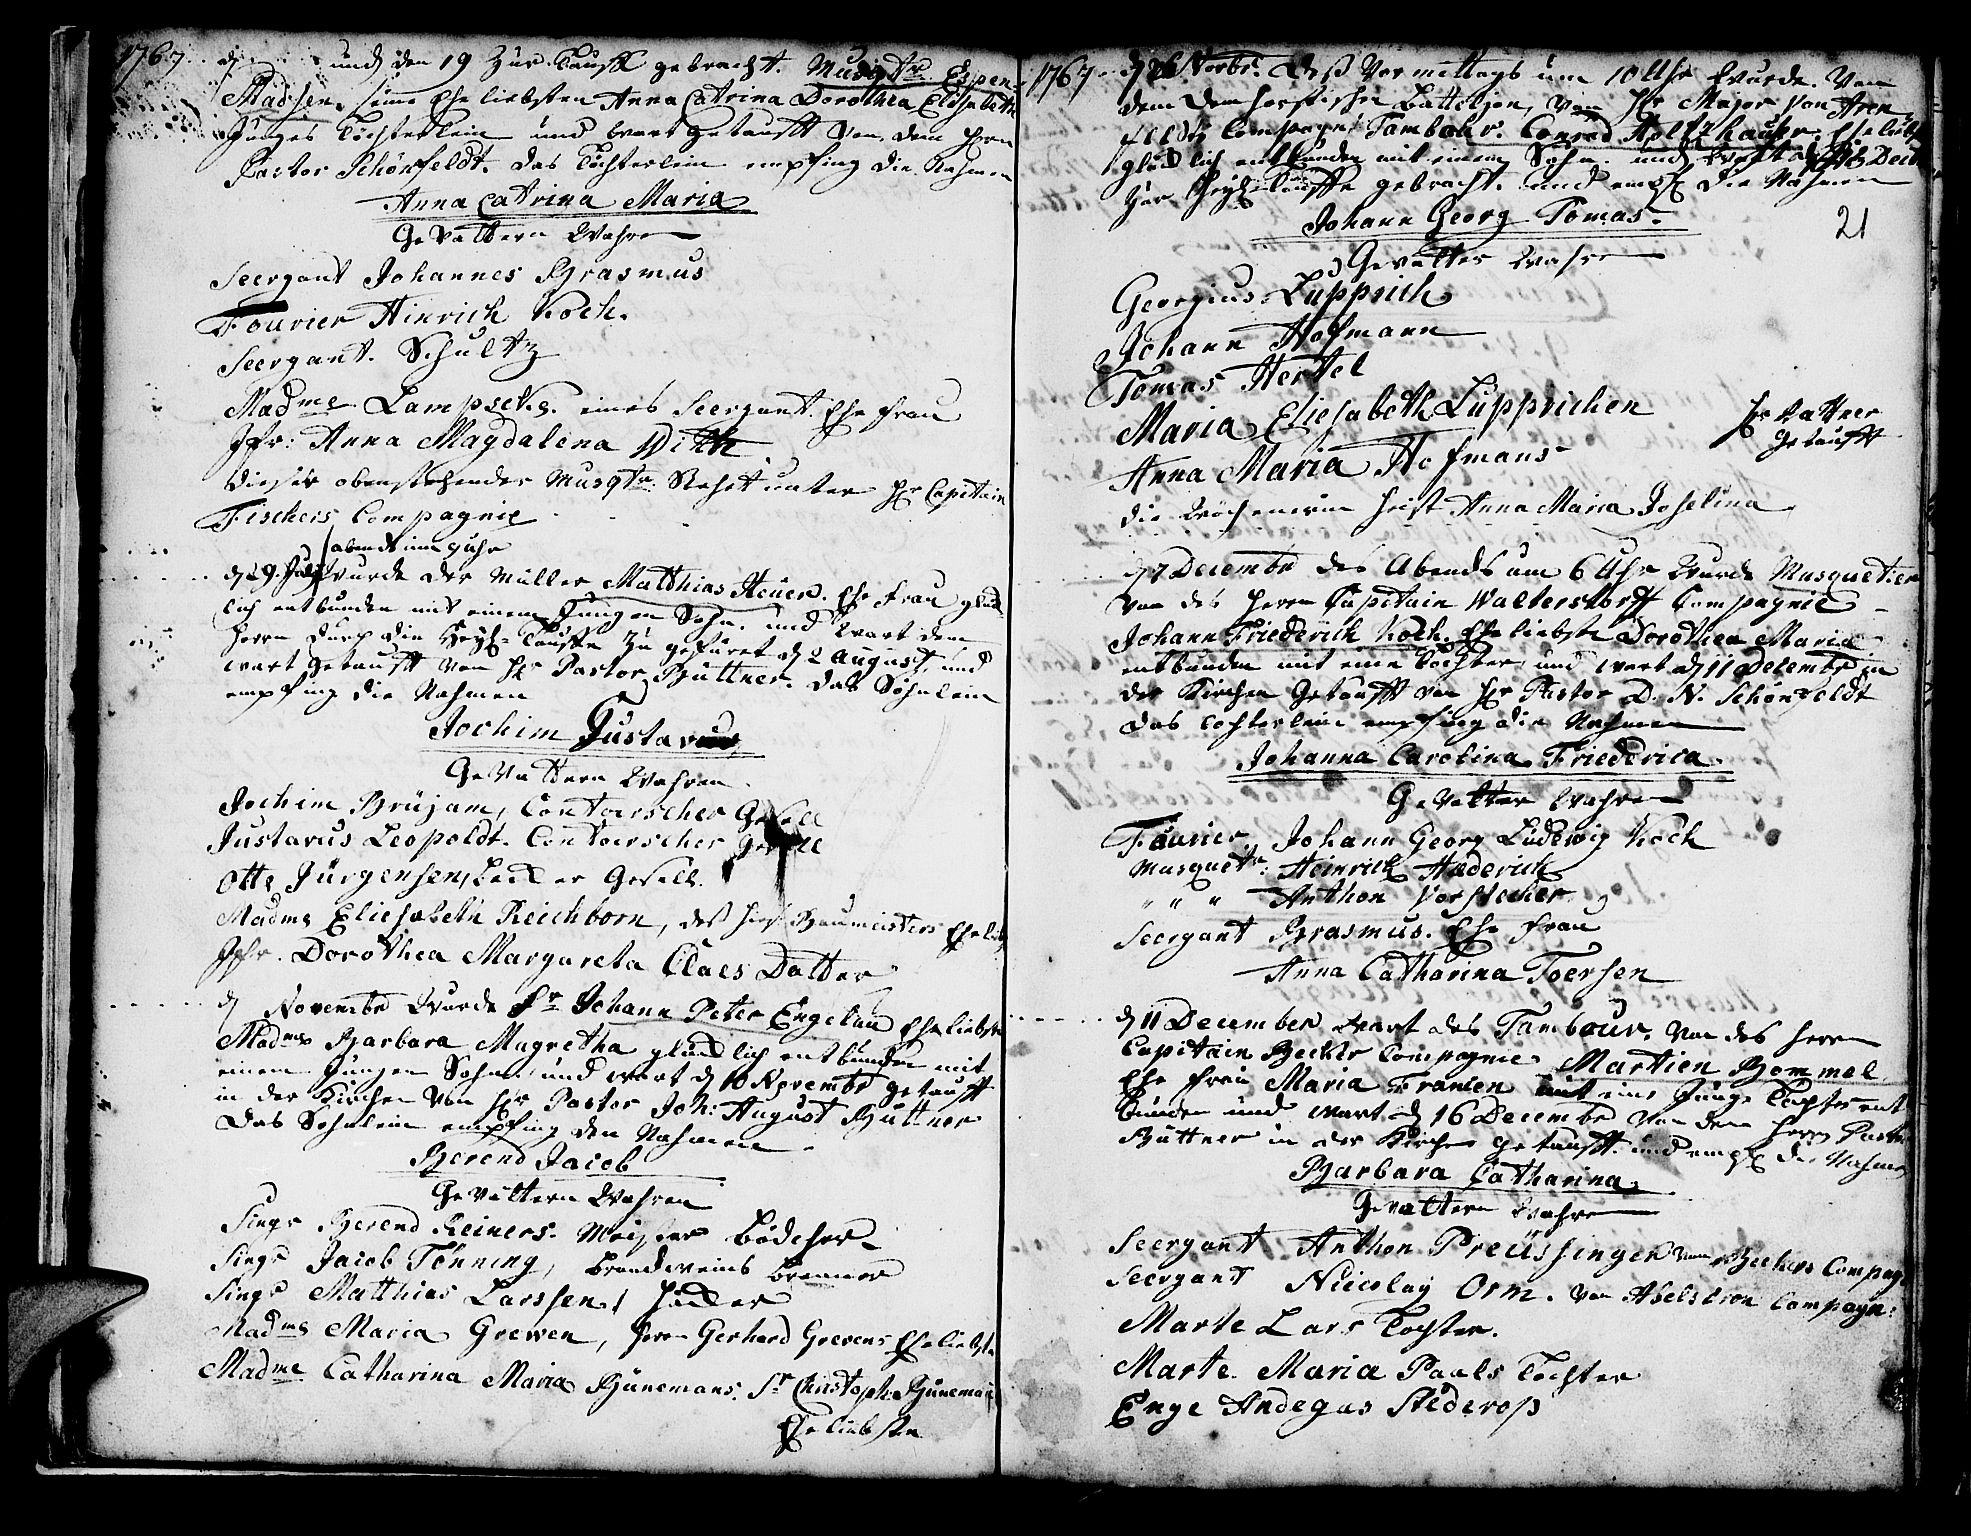 1767 d und den 19 zur Tauff gebracht. Musqtr Espen
Madsen. seine Ehe liebsten Anna Catrina Dorothea Elisabeth
Junges Töchterlein und wart getaufft von dem Hrn
Pastor Schönfeldt. das Töchterlein empfing die Nahmen
Anna Catrina Maria
Gevattern Wahren
Seergant Johannes Brasmus
Fourier Hinrich Koch.
Seergant. Schultz
Madme Lampsche. eines Seergant. Ehe frau
Jfr: Anna Magdalena Witt
Dieser obenstehender Musqtr. Stehet unter Hr Capitain
Fischers Compagnie
abends um 9 uhr
d 29. July wurde der Müller Matthias Heuer. Ehe frau glück
lich entbunden mit einem Jungen Sohn. und wart dem
Herrn durch die Heyl= Tauffe zu gefüret d 2 August, und
wart getaufft von Hr Pastor Büttner. das Söhnlein
empfing die Nahmen
Jochim Gustavus
Gevattern Wahren
Jochim Brüjam, Contoirscher Gesell
Justavus Leopoldt. Contoirscher Gesell
Otto Jürgensen, Becker Gesell.
Madme Eliesabeth Reichborn, des Hr Baumeisters Ehe lieb
Jfr. Dorothea Margareta Claes Datter
d Novembr Wurde Sr Johann Peter Engelau Ehe liebste
Madme Barbara Magretha glücklich entbunden mit
einem Jungen Sohn, und wart d 10 Novembr getaufft
in der Kirchen von Hr Pastor Joh: August Büttner
das Söhnlein empfing den Nahmen
Berend Jacob
Gevattern Wahren
Singr Berend Reiners. Meister Bödcher
Singr Jacob Tönning, Brandweins Brenner
Singr Matthias Larssen, Höcker
Madme Maria Grewen, Herr Gerhard Grevens Ehe liebste
Madme Catharina Maria Bünemans. Sr Christoph Bünemans
Ehe liebsten
1767 d 26 Novbr. deß Vormittags um 10 Uhr wurde. Von
dem Battaljon, von Hr Major von Aren
feldts Compagni Tambohr. Conrad Holtzhauser Ehe liebst
glücklich entbunden mit einem Sohn. und wart d Decbr
zur Heyl: Tauffe gebracht. und empf die Nahmen
Johann Georg Tomas.
21
Gevatter Wahren
Georgius Lupprich
Johann Hofmann
Tomas Hertel
Maria Eliesabeth Lupprichen
Hr Büttner
getaufft
Anna Maria Hofmans
die Wöchnerin heist Anna Maria Joselina
d 7 Decembr des Abends um 6 Uhr Wurde Musquetier
von des Herrn Capitain Walterstorff Compagnie
Johann Friederich Koch. Ehe liebste Dorothea Maria
entbunden mit eine Tochter, und wart d 11 Decembr in
der Kirchen Getaufft von Hr Pastor D. N. Schönfeldt
das Tochterlein empfing die Nahmen
Johanna Carolina Friederica
Gevatter Wahren
Fourier Johann Georg Ludewig Koch
Musquetr: Heinrich Hæderich
" " " Anthon Vorstecher
Seergant Brasmus. Ehe frau
Anna Catharina Toersen
d 11 December wart des Tambour. Von des Herrn
Capitain Becker Compagnie. Martien Bommel
Ehe frau Maria Franlen mit eine Junge Tochter ent
bunden und wart d 16 Decembr von dem Herrn Pastor
Büttner in der Kirche getaufft. und empf die Nahmen
Barbara Catharina
Gevattern Wahren
Seergant Anthon Preüssinger von Beckers Compag
Seergant Nicolay Orm. von Abelstron Compagn:
Marte Lars Tochter.
Marte Maria Paals Tochter
Enge Andegas Stederop